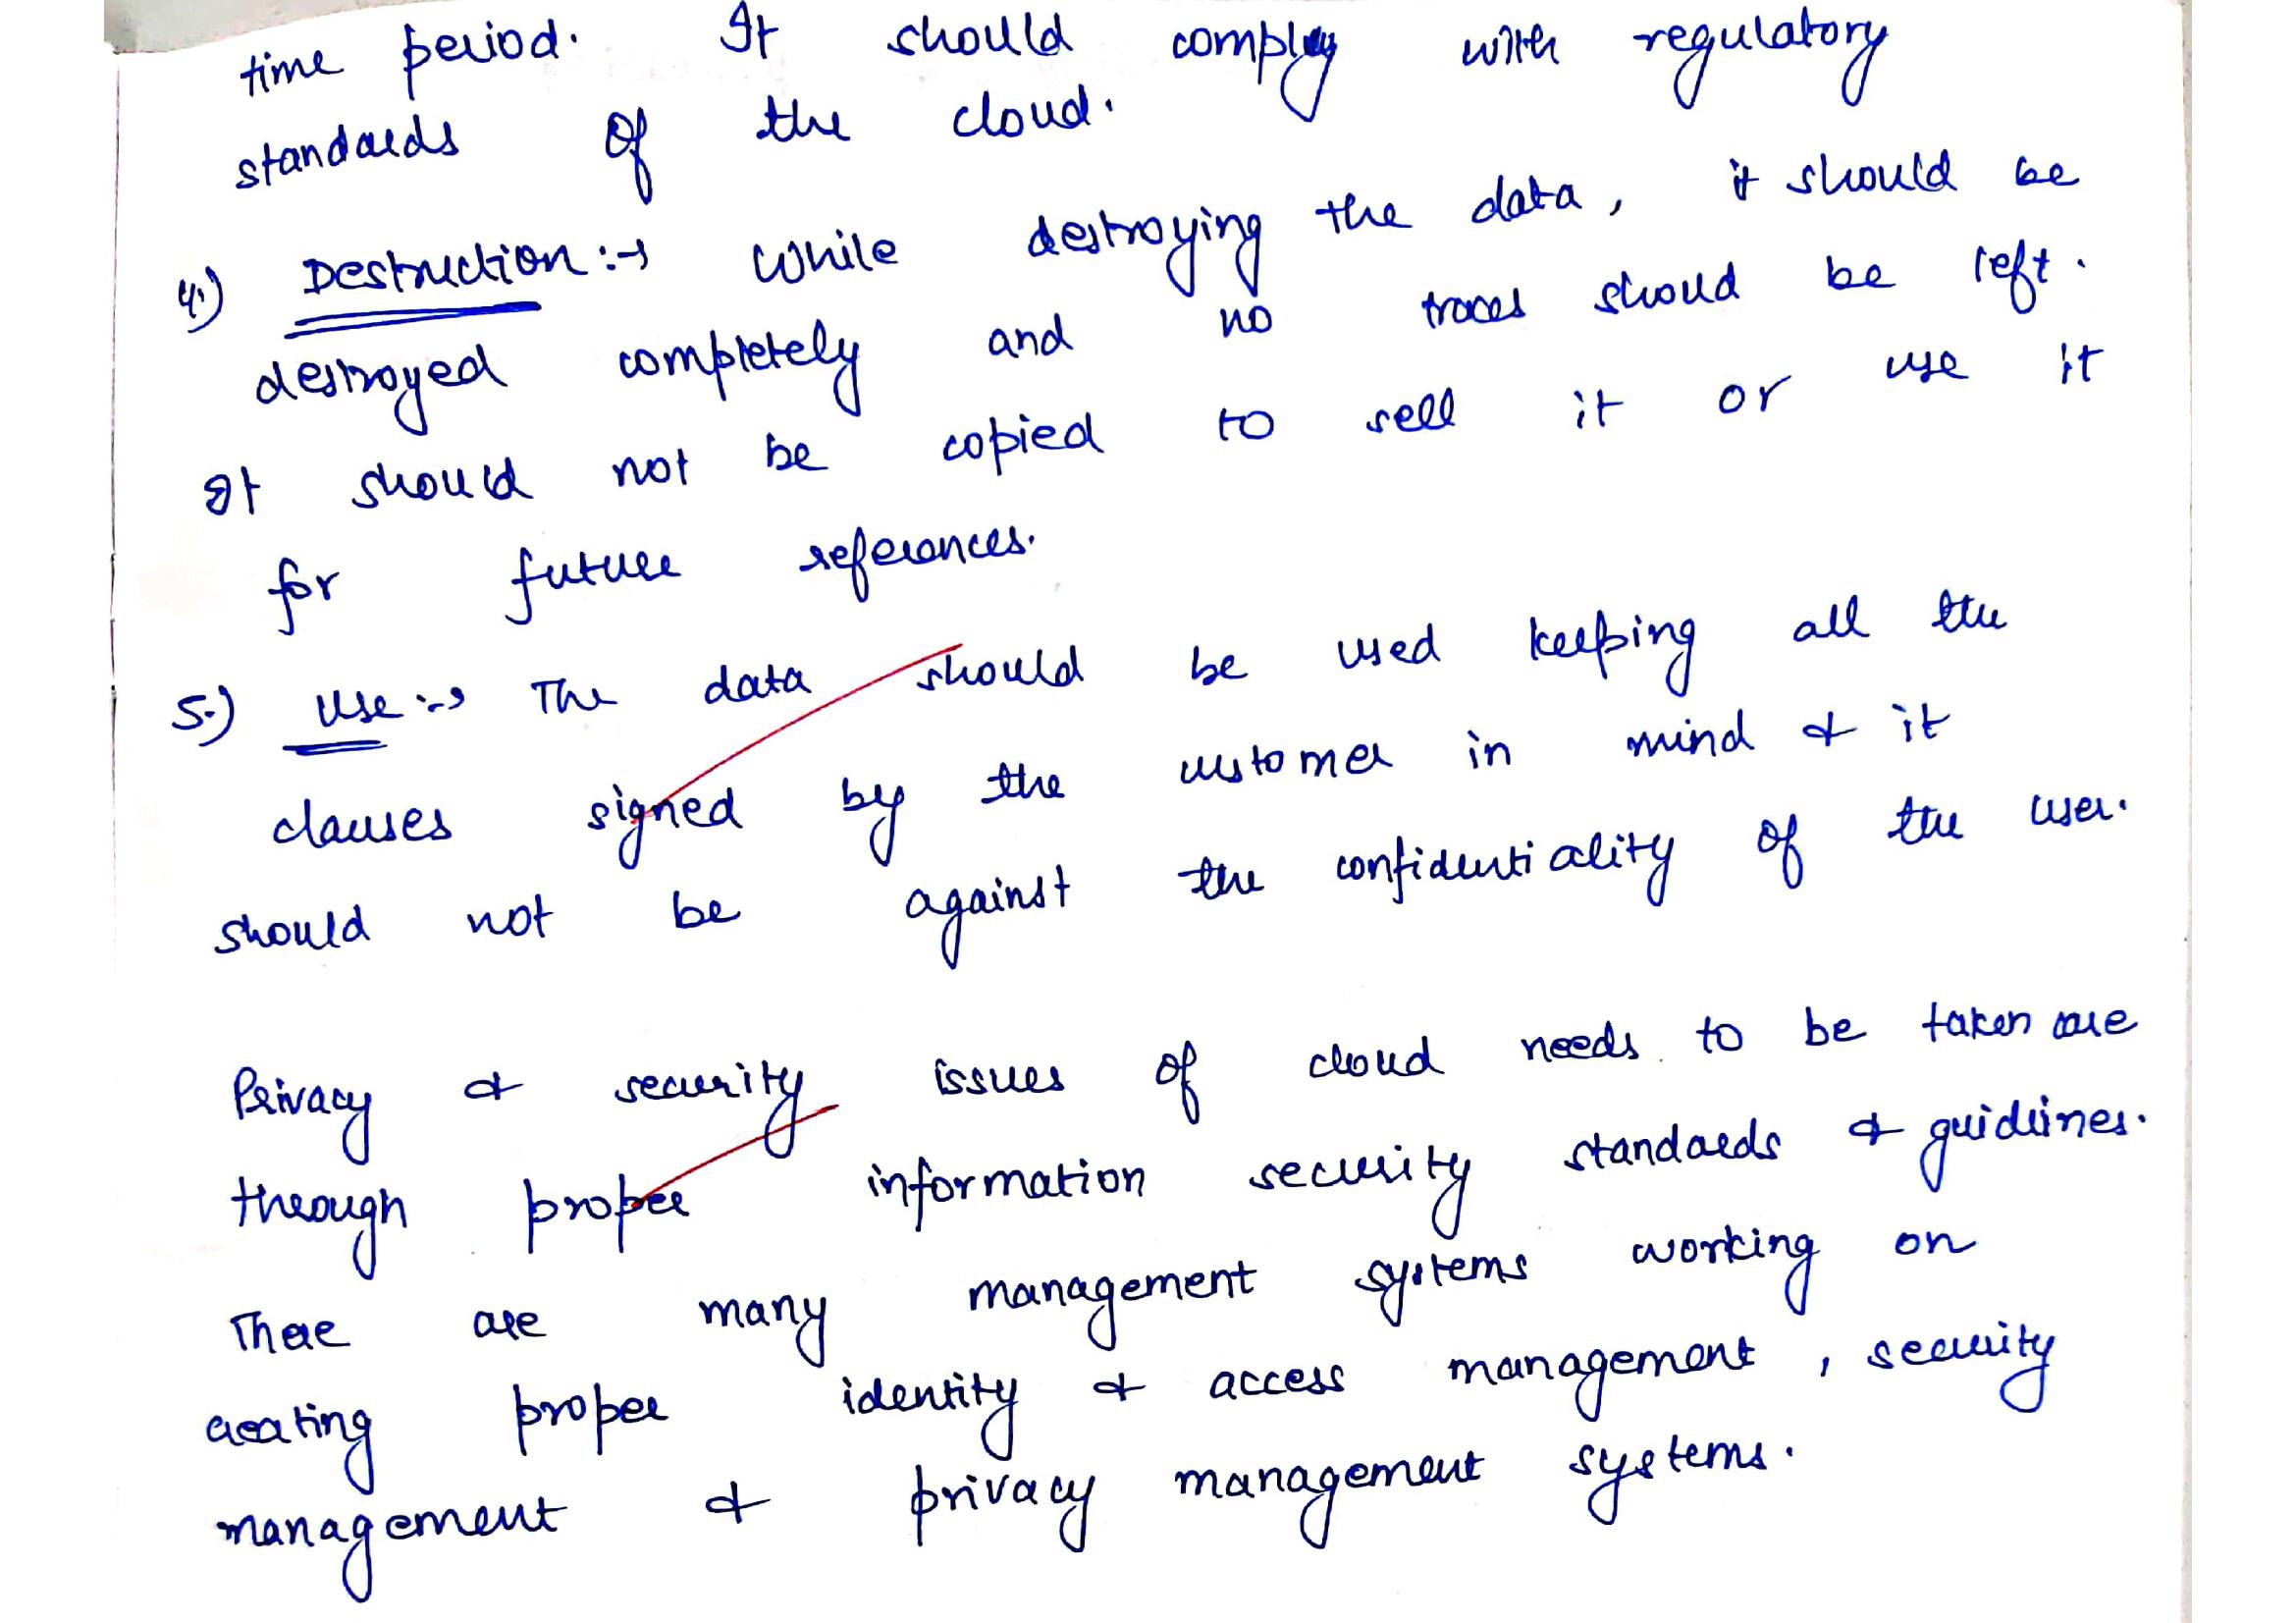 time period. It should comply with regulatory
standards of the cloud.
4.) Destruction :→ While destroying the data, it should be
destroyed completely and no traces should be left.
It should not be copied to sell it or use it
for future references.
5.) Use :→ The data should be used keeping all the
clauses signed by the customer in mind & it
should not be against the confidentiality of the user.
Privacy & security issues of cloud needs to be taken care
through proper information security standards & guidlines.
There are many management systems working on
creating proper identity & access management, security
management & privacy management systems.